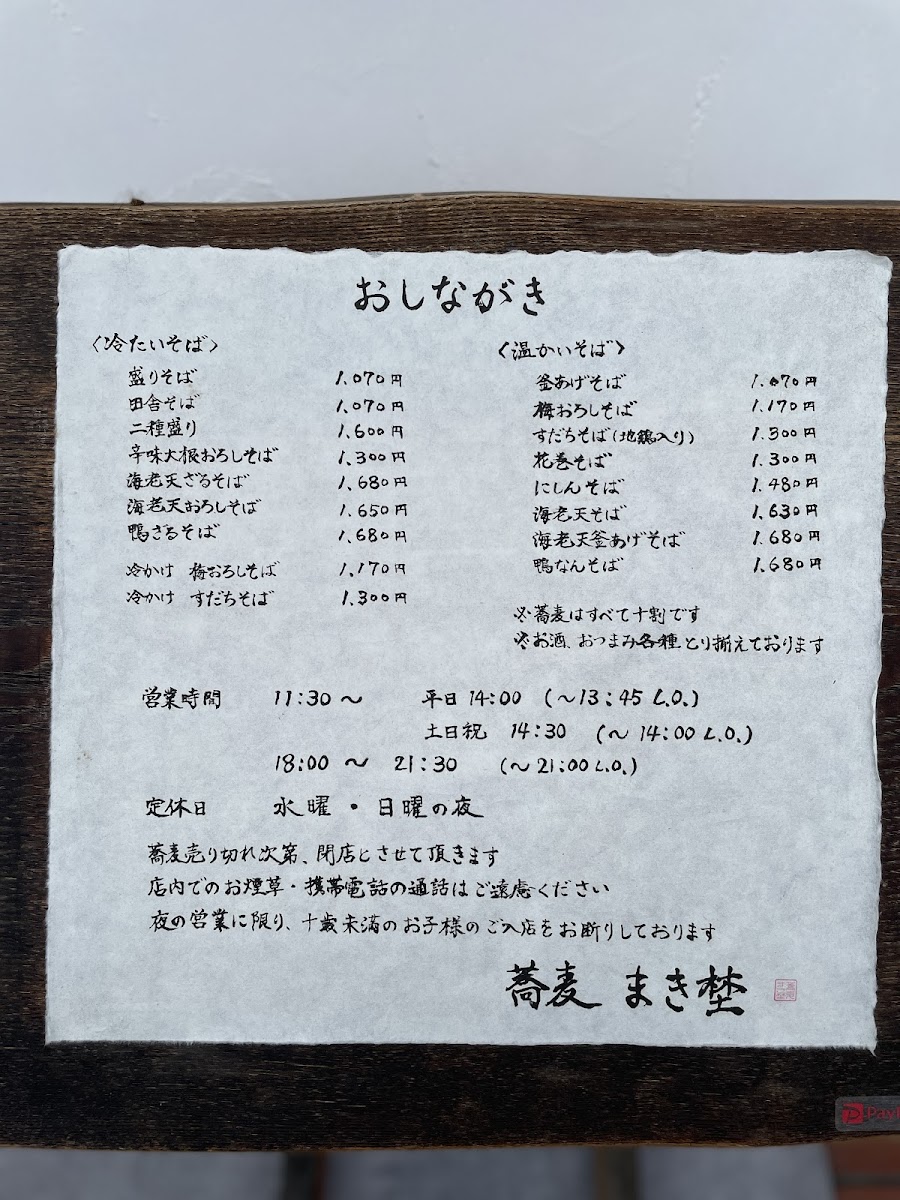 おしながき
〈冷たいそば〉
盛りそば 1.070円
田舎そば 1.070円
二種盛り 1.600円
辛味大根おろしそば 1.300円
海老天ざるそば 1.680円
海老天おろしそば 1.650円
鴨ざるそば 1.680円
冷かけ 梅おろしそば 1.170円
冷かけ すだちそば 1.300円
〈温かいそば〉
釜あげそば 1.070円
梅おろしそば 1.170円
すだちそば(地鶏入り) 1.300円
花巻そば 1.300円
にしんそば 1.480円
海老天そば 1.630円
海老天釜あげそば 1.680円
鴨なんそば 1.680円
※蕎麦はすべて十割です
※お酒、おつまみ各種とり揃えております
営業時間 11:30〜 平日 14:00 (〜13:45 L.O.)
土日祝 14:30 (〜14:00 L.O.)
18:00 〜 21:30 (〜21:00 L.O.)
定休日 水曜・日曜の夜
蕎麦売り切れ次第、閉店とさせて頂きます
店内でのお煙草・携帯電話の通話はご遠慮ください
夜の営業に限り、十歳未満のお子様のご入店をお断りしております
蕎麦 まき埜